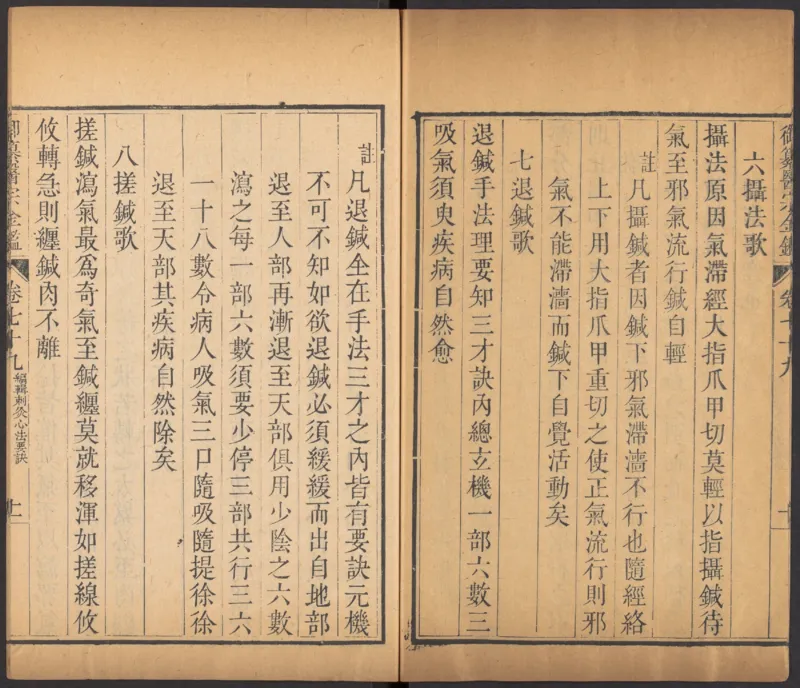 御纂醫宗金鑑 卷七十九
六攝法歌
攝法原因氣滯經大指爪甲切莫輕以指攝鍼待
氣至邪氣流行鍼自輕
註凡攝鍼者因鍼下邪氣滯濇不行也隨經絡
上下用大指爪甲重切之使正氣流行則邪
氣不能滯濇而鍼下自覺活動矣
七退鍼歌
退鍼手法理要知三才訣內總玄機一部六數三
吸氣須臾疾病自然愈
註凡退鍼全在手法三才之內皆有要訣元機
不可不知如欲退鍼必須緩緩而出自地部
退至人部再漸退至天部俱用少陰之六數
瀉之每一部六數須要少停三部共行三六
一十八數令病人吸氣三口隨吸隨提徐徐
退至天部其疾病自然除矣
八搓鍼歌
搓鍼瀉氣最爲奇氣至鍼纏莫就移渾如搓線攸
攸轉急則纏鍼肉不離
御纂醫宗金鑑 卷七十九 編輯刺灸心法要訣 上